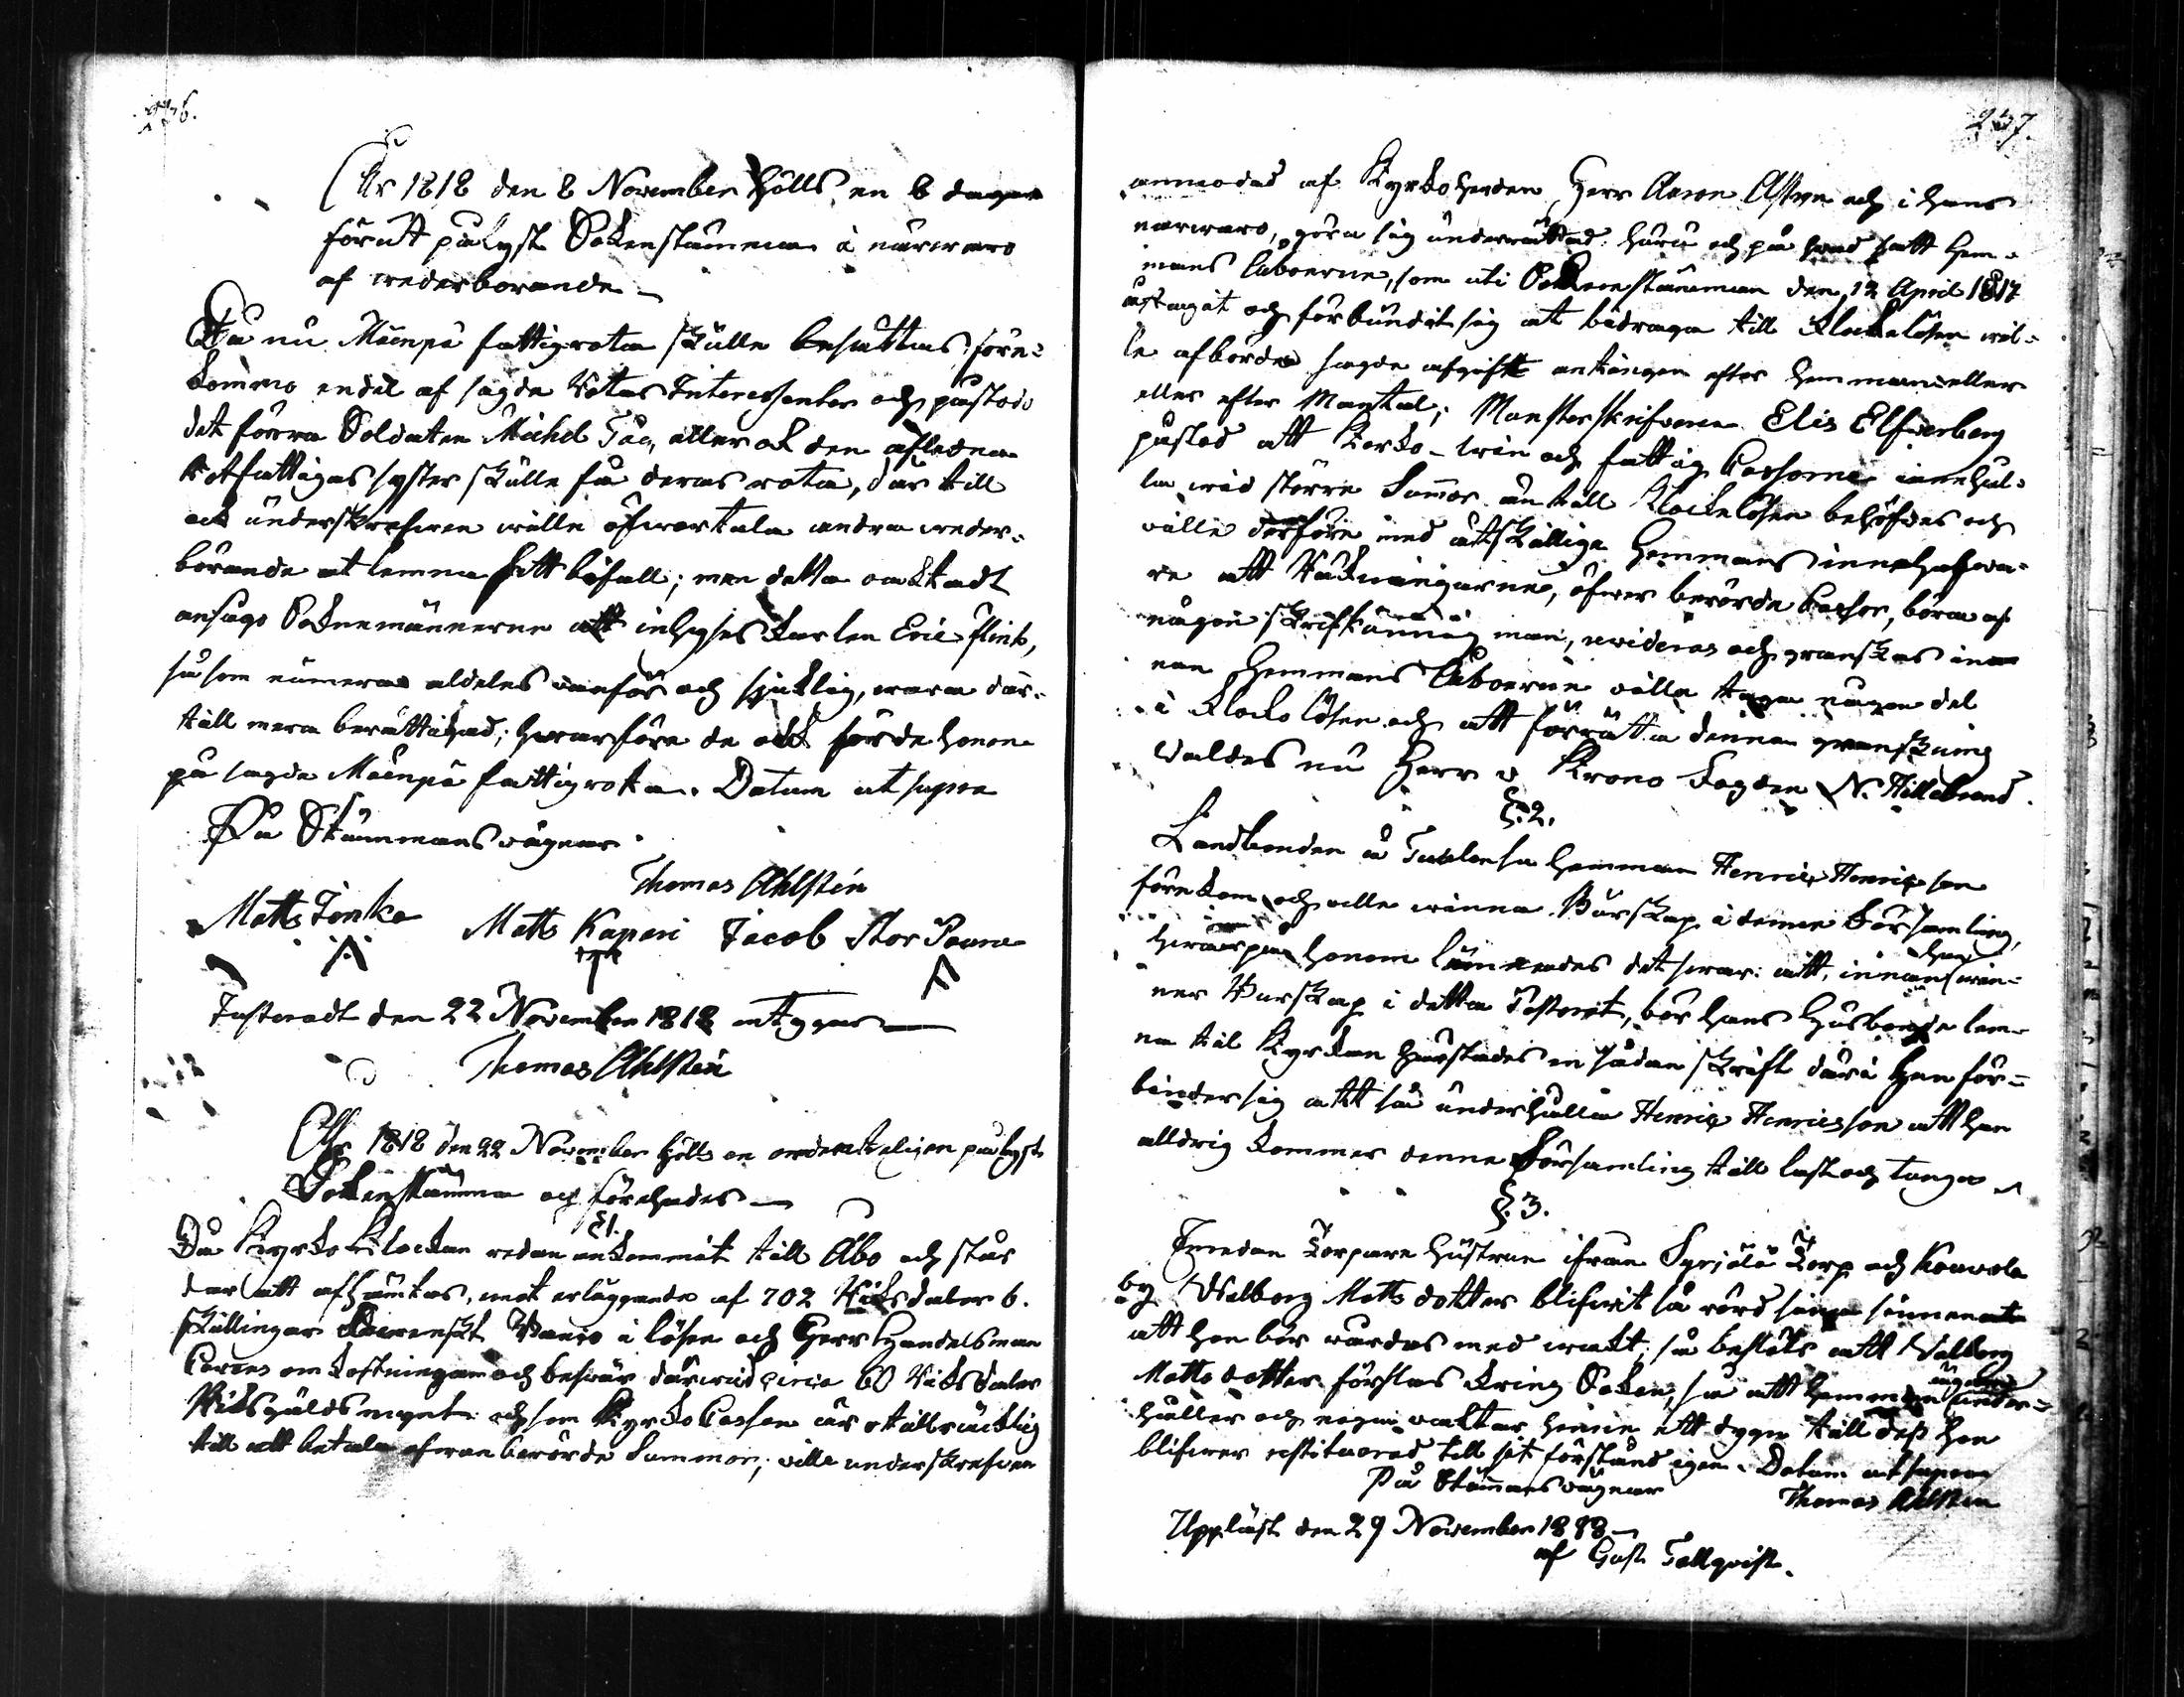 236.
År 1818 den 8 November hölls en 8 dagar
förut pålyst Sokenstämma i närwaro
af wederborande
Då nu Mäenpä fattigrota skulle besättas, före-
kommo endel af sagde Rotas Interessenter och påstodo
det förra Soldaten Michel Tåg, eller ock den afledna
Rotfattigas syster skulle få deras rota, där till
ock underskrefwen wille öfwertala andra weder-
börande at lemna sitt bifall; men detta oaktadt
ansågo Soknemännerne att inhyses karlen Eric Flink,
såsom numera aldeles wanför och sjuklig, wara där-
till mera berättigad; hwarföre de ock förde honom
på sagde Mäenpä fattigrota. Datum ut supra
På Stämmans vägnar
Thomas Ahlstén
Matts Jonka Matts Kapari Jacob Stor Paara
Justeradt den 22 November 1818 intygar
Thomas Ahlstén
År 1818 den 22 November hölls en ordenteligen pålyst
Sokenstämma och förehades
§1.
Då Kyrko Klockan redan ankommit till Åbo och står
dar att afhämtas, mot erläggande af 702 Riksdaler 6.
skillingar Swenskt Banco i lösen och Herr Handelsman
omkostningar och beswär därwid circa 60 Riksdaler
Riksgälds mynt: och som Kyrko Cassan är otillräcklig
till att betala ofwanberörde Summor, ville underskrefwen
237.
anmodad af Kyrkoherden Herr Aaron och i hans
närwaro, göra sig underrättad: huru och på hwad sätt Hem-
mans Åboerne, som uti Sockenstämman den 12 April 1817
åtagit och förbundit sig at bidraga till Klockelösen wil-
le afbörda sagde afgift antingen efter hemman eller
eller efter Mantal; Mönsterskrifvaren Elis Elfwerberg
påstod att Kyrko- win och fattig Cassorne innehål-
la wid större Summor än till Klockelösen behöfdes och
ville derföre med åtskillige Hemmans innehafwa-
re att Räkningarne, öfwer berörde Cassor, böra af
någon skrifkunnig man, revideras och granskas innan
Hemmans Åboerne villa taga någon del
i Klocko lösen och att förrätta denna granskning
valdes nu Herr v. Krono Fogden N. Hillebrand.
§.2.
Landbonden å hemman Henric Henricsson
förekom och ville winna Burskap i denne Församling,
hwarpå honom lämnades det swar: att, innan han win-
ner Burskap i detta Pastorat, bör hans Husbonde lem-
na til Kyrkan härstädes en sådan skrift däri Han för-
binder sig att så underhålla Henric Henricsson att han
alldrig kommer denne Församling till last och tunga
§.3.
Emedan Torpare hustrun ifrån Syrjälä Torp och Kouvola
by Walborg Matts dotter blifwit så rörd sina sinnen
att hon bör wårdas med wakt; så beslöts att Walborg
Matts dotter förslas kring Soken, så att hemmans ägare under-
håller och noga vaktar henne ett dygn till dess hon
blifwer restituerad till sit förstånd igen. Datum ut supra
På Stämmans vägnar Thomas Ahlstén
Uppläst den 29 November 1818
af Gust. Tallqvist.